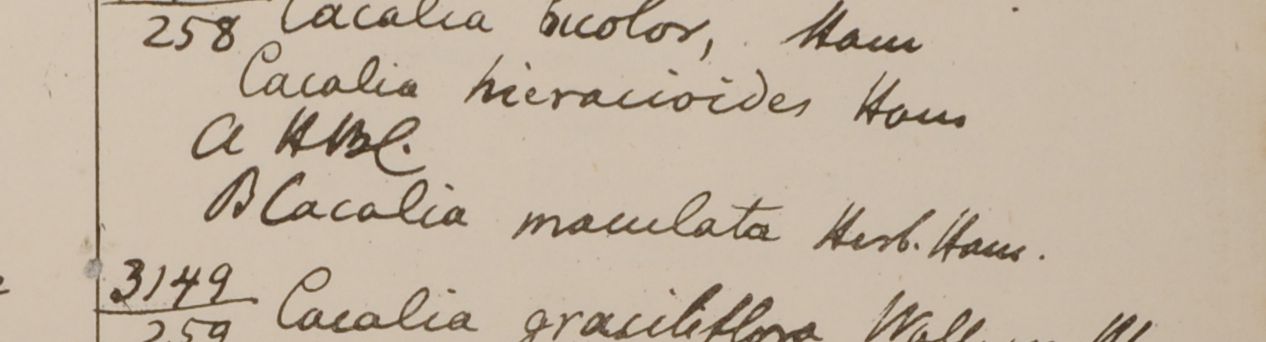 258 Cacalia bicolor, Ham
Cacalia hieracioides Ham
A HBC.
B Cacalia maculata Herb. Ham.
3149
259 Cacalia graciliflora Wall